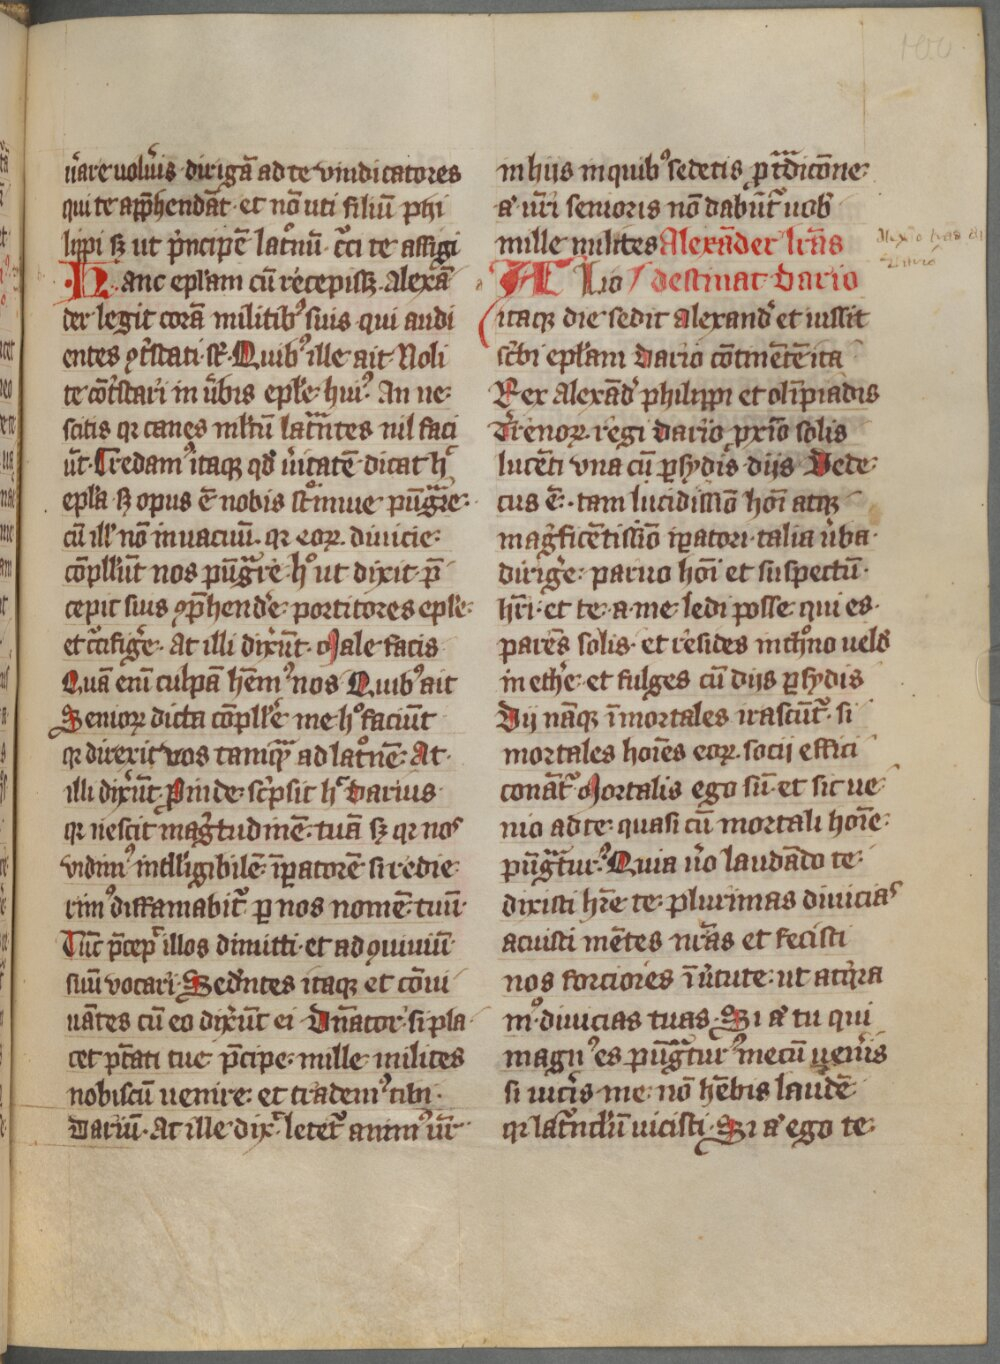 ũare uolũis dirigã ad te vindicatores
qui te app̃hendãt et nõ uti filiũ phi
lippi sꝫ ut pͥncipẽ latͦnũ c̃ci te affigi
Hanc epl̃am cũ recepissꝫ Alexã
der legit corã militibꝰ suis qui audi
entes ꝯtͥstati st̃ Quibꝰ ille ait Noli
te cõtͥstari in ũbis epl̃e huiꝰ An ne
scitis qr canes ml̃tũ latͣntes nil faci
ũt Credamꝰ itaqꝫ qd̃ ũitatẽ dicat hͨ
epl̃a sꝫ opus ẽ nobis stͤnnue pũgͣre
cũ ill̃ nõ in uacuũ qr eoꝝ diuicie
cõpll̃ũt nos pũgͣre hͦ ut dixit p̃
cepit suis ꝯp̃hendẽ portitores epl̃e
et cͧcifigẽ At illi dix̃ũt Male facis
Quã enĩ culpã hẽmꝰ nos Quibꝰ ait
Senioꝝ dicta cõpll̃ẽ me hͦ faciũt
qr direxit vos tamqͣ ad latͦnẽ At
illi dix̃ũt Proinde scͥpsit hͨ Darius
qr nescit magͥtudinẽ tuã sꝫ qr nos
vidimꝰ intll̃igibilẽ ĩꝑatorẽ si redie
rimꝰ diffamabit̃ ꝑ nos nomẽ tuũ
Tũc p̃cepͥ illos dimitti et ad ꝯuiuiũ
suũ vocari Sedẽntes itaqꝫ et cõui
uãtes cũ eo dix̃ũt ei Dñator si pla
cet ptãti tue p̃cipe mille milites
nobiscũ uenire et trademꝰ tibi
Dariũ At ille dix̃ letet̃ animꝰ ur̃
in hijs in quibꝰ sedetis p tͣdicõne
aͣ ur̃i senioris nõ dabũt̃ uob
mille milites Alexãder lr̃as
Alio destinat Dario
itaqꝫ die sedit alexandẽ et iussit
scͥbi epl̃am Dario cõtinẽtẽ ita
Rex Alexãdẽ philippi et olĩpiadis
Tͥrenoꝝ regi dario ꝓxĩo solis
lucẽti vna cũ ꝑsydis dijs Dede
cus ẽ tam lucidissĩo hoĩ atqꝫ
magͥficẽtissĩo ĩꝑatori talia ũba
dirigẽ paruo hoĩ et suspectũ
hr̃i et te a me ledi posse qui es
parẽs solis et resides in thͦno uel
in ethẽ et fulges cũ dijs ꝑsydis
Dij nãqꝫ ĩmortales irascũt̃ si
mortales hoĩes eoꝝ socij effici
conãt̃ Mortalis ego sũ et sic ue
nio ad te quasi cũ mortali hoĩe
pũgͣturꝰ Quia ũo laudãdo te
dixisti hr̃e te plurimas diuicias
acuisti mẽtes nr̃as et fecisti
nos forciores ĩ ũtute ut atqͥra
mꝰ diuicias tuas Si aͣ tu qui
magnꝰ es pũgͣturꝰ mecũ uenẽis
si uicẽis me nõ hẽbis laudẽ
qr latͦncl̃ũ uicisti Si aͣ ego te